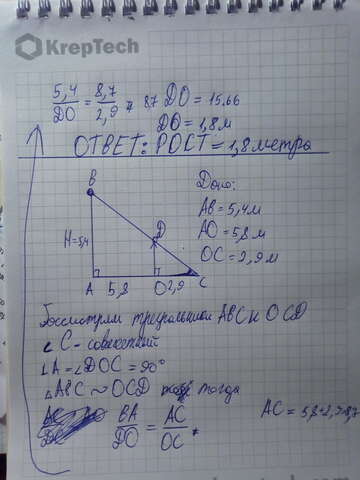 KrepTech
5,4/DO = 8,7/2,9 8,7 DO = 15,66
DO = 1,8 м
ОТВЕТ: РОСТ = 1,8 метра
B
Дано:
AB = 5,4 м
AO = 5,8 м
OC = 2,9 м
D
H = 5,4
A 5,8 O 2,9 C
Рассмотрим треугольники ABC и OCD
∠C - совместный
∠A = ∠DOC = 90°
△ABC ~ OCD тогда
BA/DO = AC/OC
AC = 5,8+2,9=8,7